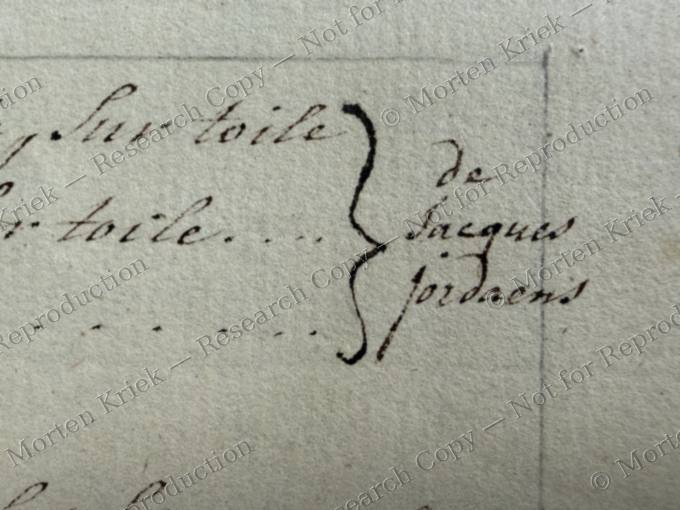 sur toile
toile....
de
Jacques
jordaens
. . . . . .
© Morten Kriek — Research Copy — Not for Reproduction